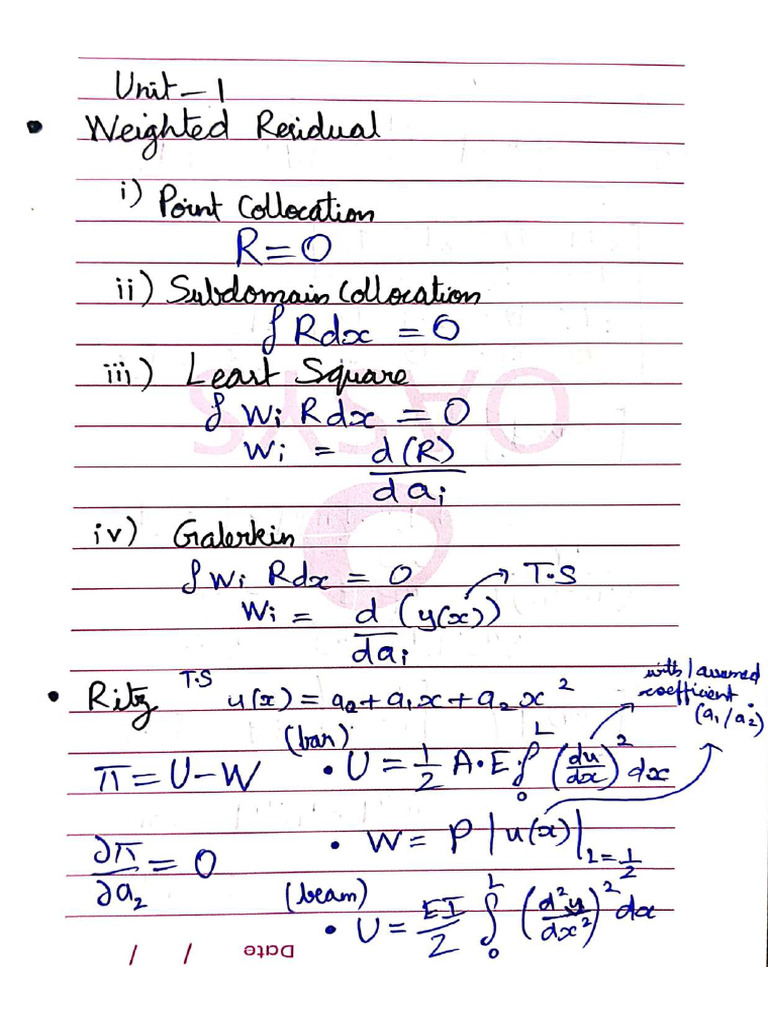 Unit-1
• Weighted Residual
i) Point Collocation
R=0
ii) Subdomain Collocation
∫ Rdx = 0
iii) Least Square
∫ Wi Rdx = 0
Wi = d(R)/dai
iv) Galerkin
∫ Wi Rdx = 0 → T.S
Wi = d/dai (y(x))
• Ritz T.S u(x) = a0 + a1x + a2x²
with 1 assumed
coefficient.
(a1/a2)
(bar)
π = U-W • U = 1/2 A·E ∫₀ᴸ (du/dx)² dx
∂π/∂a2 = 0 • W = P |u(x)|L=1/2
(beam)
• U = EI/2 ∫₀ᴸ (d²y/dx²)² dx
Date / /
OASYS